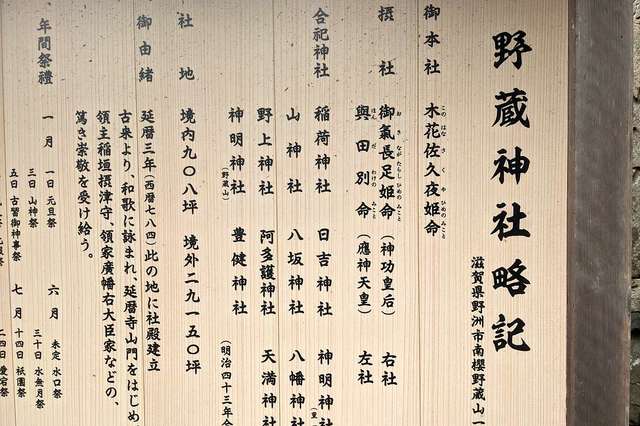 野蔵神社略記
滋賀県野洲市南櫻野蔵山一
御本社 木花佐久夜姫命
このはなさくやひめのみこと
摂社 御氣長足姫命(神功皇后) 右社
おきながたらしひめのみこと
與田別命(應神天皇) 左社
ほんだわけのみこと
合祀神社 稲荷神社 日吉神社 神明神社
山神社 八坂神社 八幡神社
野上神社 阿多護神社 天満神社
神明神社(野蔵山) 豊健神社 (明治四十三年合
社地 境内九〇八坪 境外二九一五〇坪
御由緒 延暦三年(西暦七八四)此の地に社殿建立
古来より、和歌に詠まれ、延暦寺山門をはじめ
領主稲垣摂津守、領家廣幡右大臣家などの、
篤き崇敬を受け給う。
年間祭禮 一月 一日 元旦祭 六月 未定 水口祭
三日 山神祭 三十日 水無月祭
五日 古習御神事祭 七月 十四日 祇園祭
二四日 愛宕祭